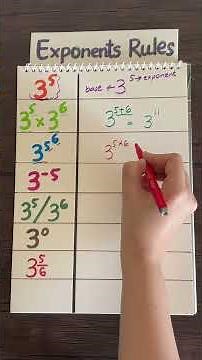 Exponents Rules
3⁵ base ← 3⁵ → exponent
3⁵ × 3⁶ 3⁵⁺⁶ = 3¹¹
3⁵·⁶ 3⁵ˣ⁶
3⁻⁵
3⁵/3⁶
3⁰
3^5/6